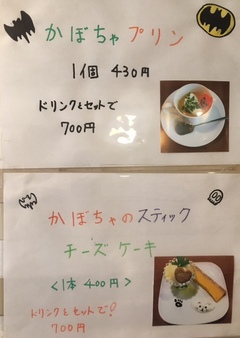 かぼちゃプリン
1個 430円
ドリンクとセットで
700円
かぼちゃのスティック
チーズケーキ
<1本 400円>
ドリンクとセットで!
700円